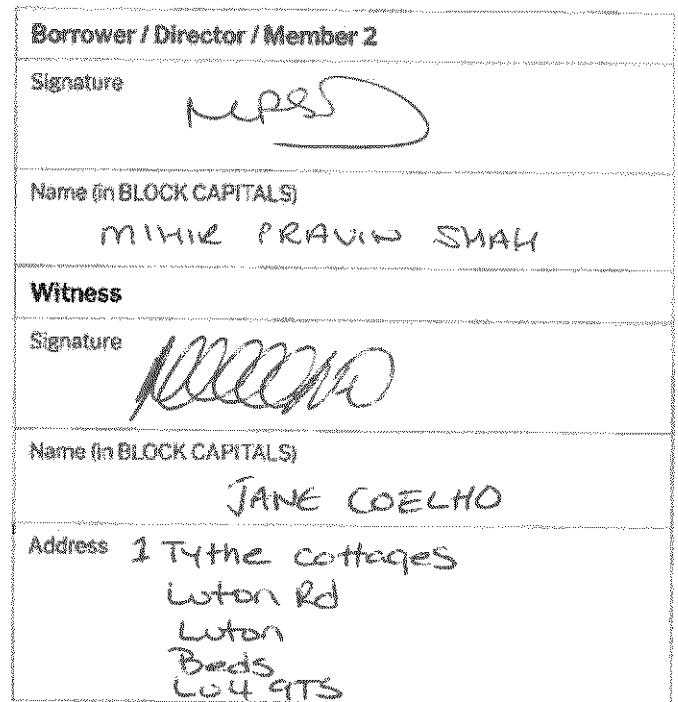 Borrower / Director / Member 2
Signature
MPS
Name (in BLOCK CAPITALS)
MIHIR PRAVIN SHAH
Witness
Signature
Name (in BLOCK CAPITALS)
JANE COELHO
Address 1 Tythe cottages
Luton Rd
Luton
Beds
LU4 9TS